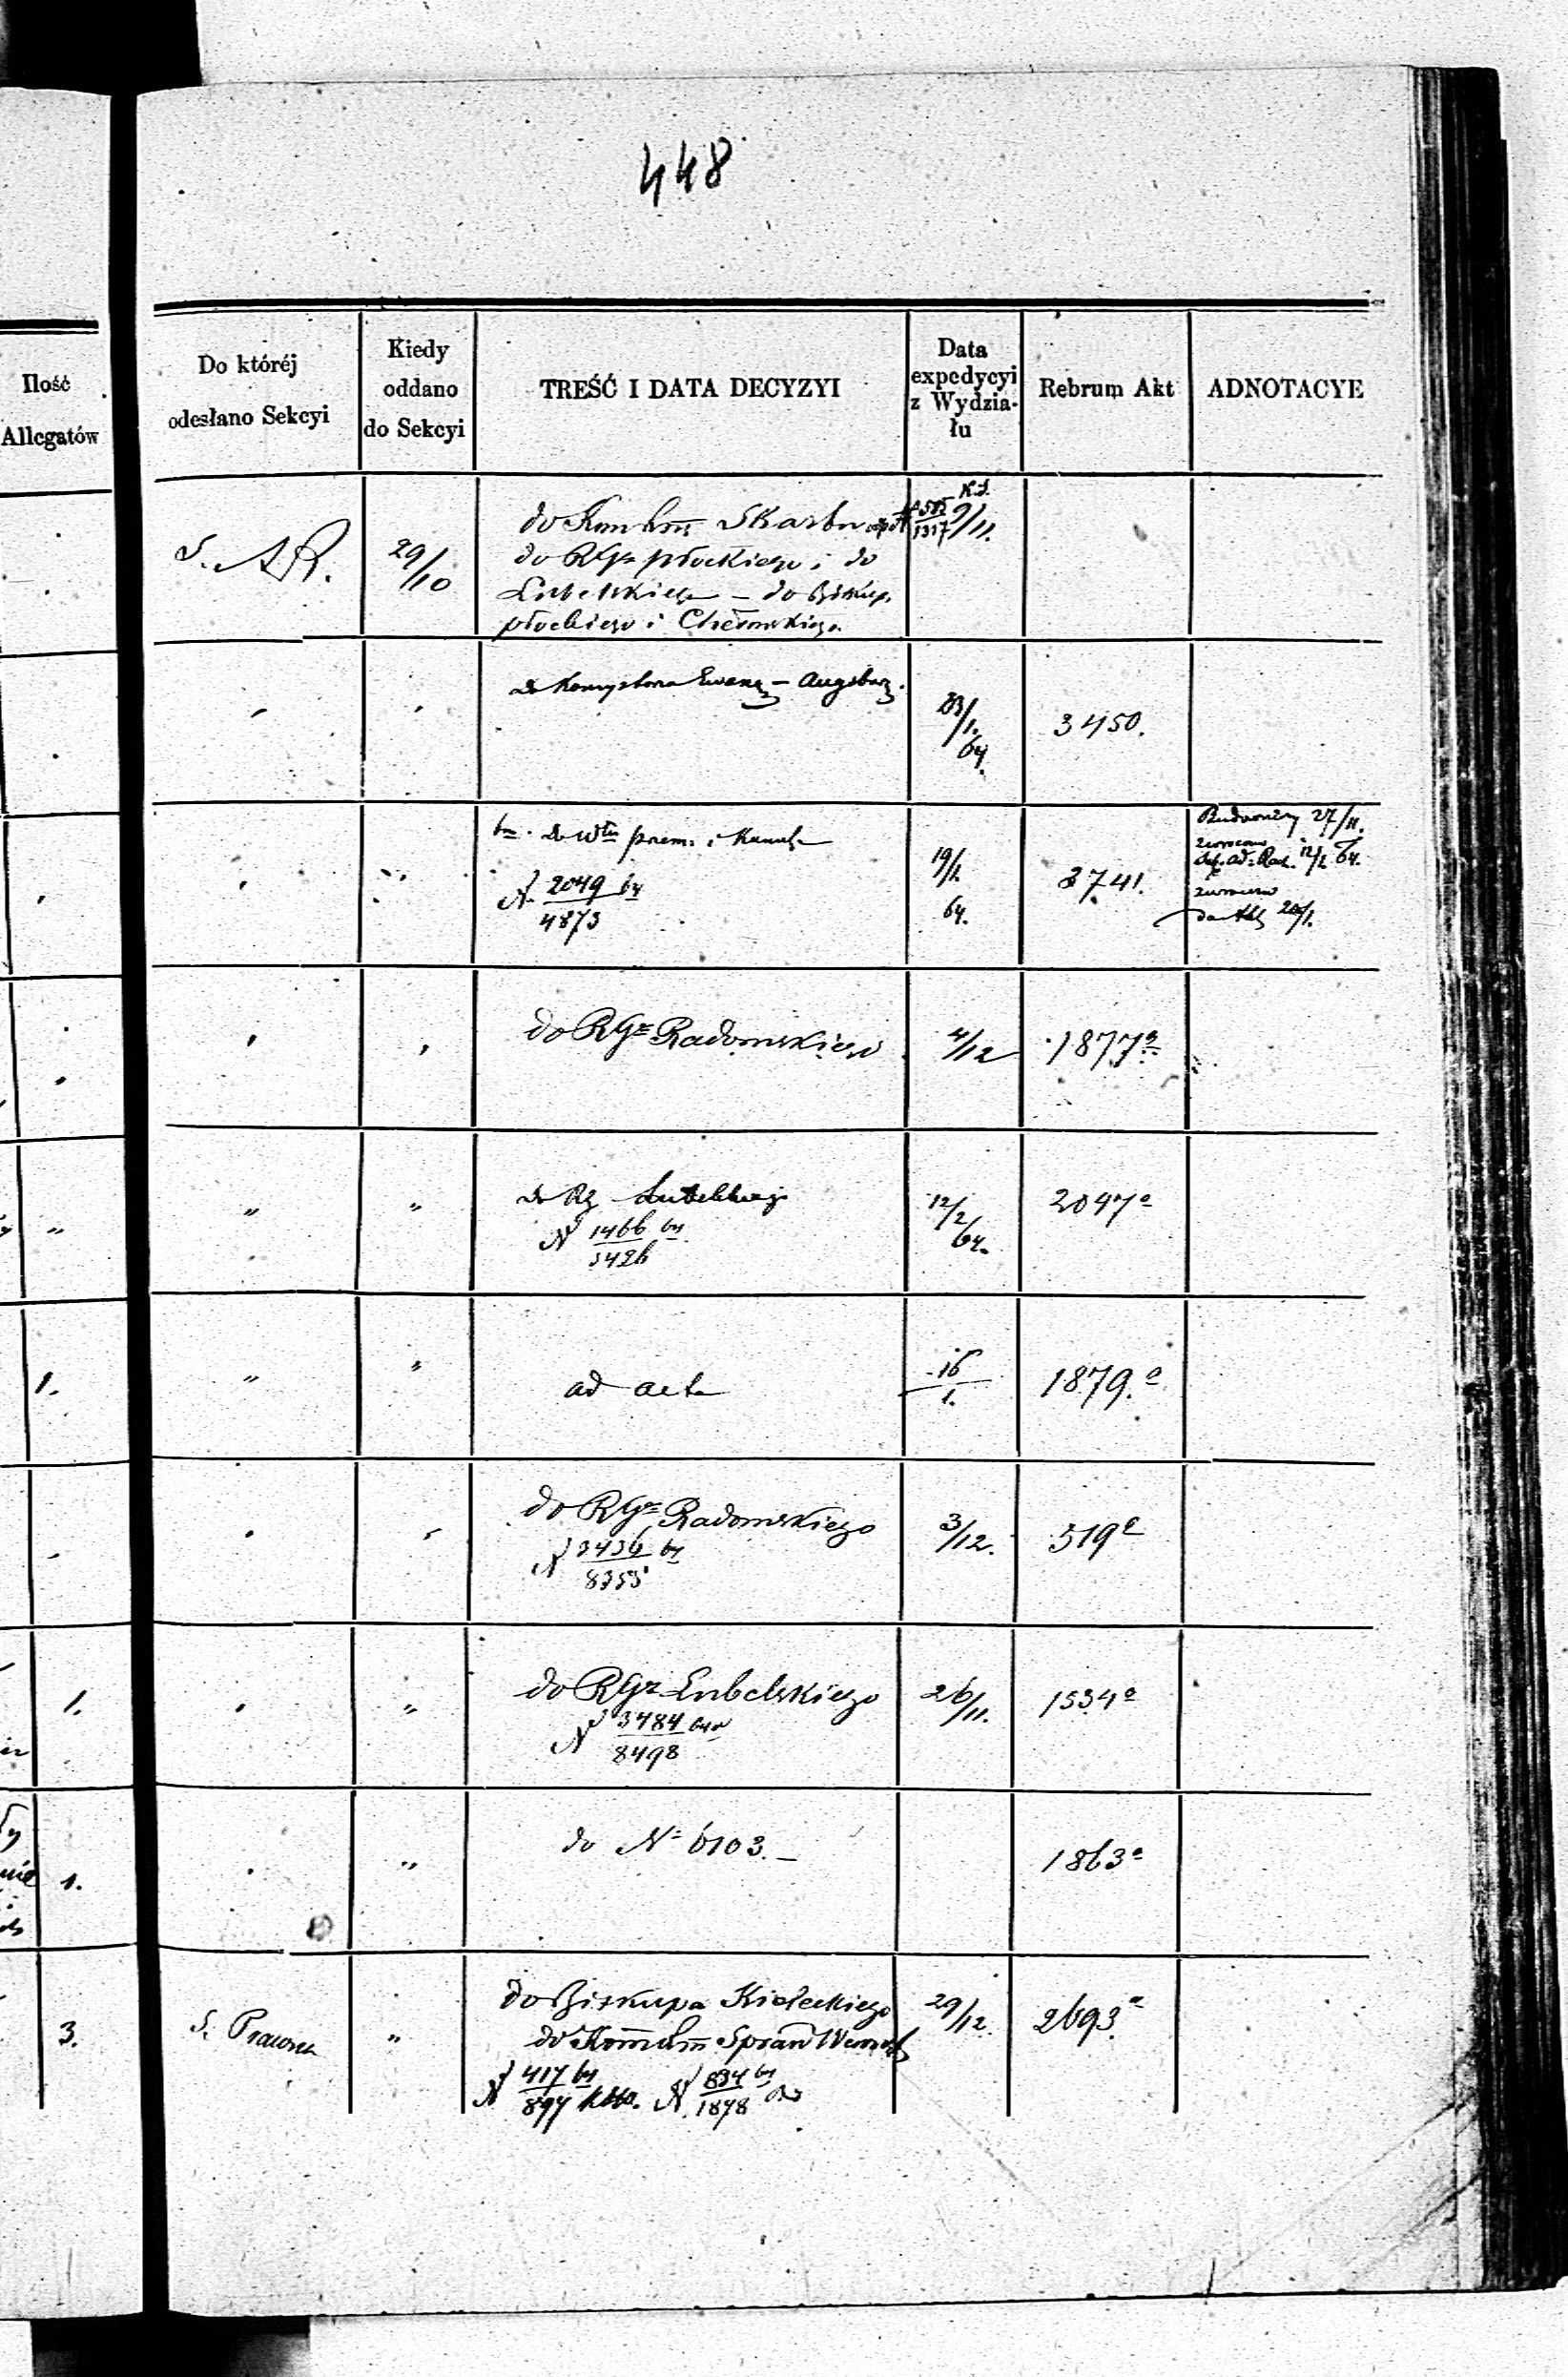 448
Ilość
Allegatów
Do któréj
odesłano Sekcyi
Kiedy
oddano
do Sekcyi
TREŚĆ I DATA DECYZYI
Data
expedycyi
z Wydzia-
łu
Rebrum Akt
ADNOTACYE
S. AR.
29/10
do Skarbu
9/11.
do RGr płockiego i do
Lubelskiego – do Biskup.
płockiego i Chełmskiego
" "
do Konsystorza Ewang – Augsburg.
23/1.
64.
3450.
" "
do Włu przem. i
N. 2049 64
4873
19/1.
64.
3741.
27/11.
zwrócono
12/1 64.
zwrócono
20/1.
" "
do RGr Radomskiego
4/12
1877a
" " "
do Rg Lubelskiego
N 1466 64
3426
12/2
64.
2047a
1. " "
ad acta
16
1.
1879.a
" "
do RGr Radomskiego
N 3436 64
8355
3/12.
519a
1. " "
do RGr Lubelskiego
N 3484 64
8498
26/11.
1534a
1. " "
do No 6103. –
1863a
3.
S. Prawna
"
do Biskupa Kieleckiego
do Spraw Wewn
N 417 64 N 834 64
897 1878
29/12.
2693a